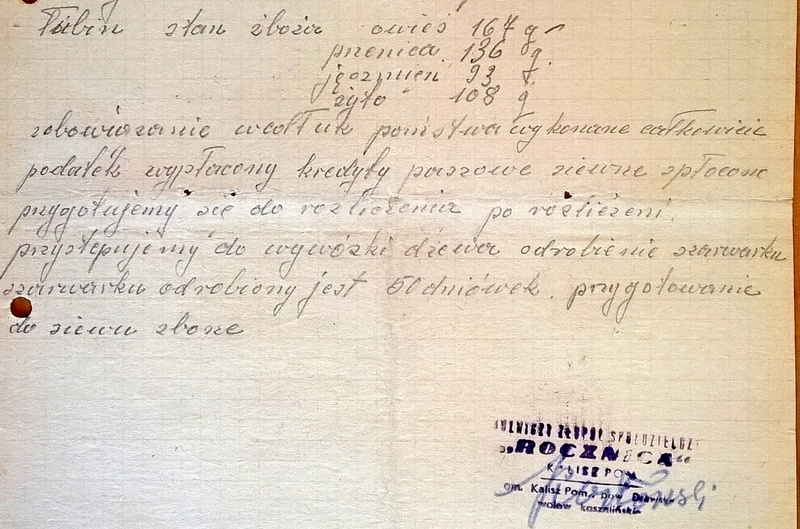 Łubin stan zboża owies 167 q
pszenica 136 q.
jęczmień 93 q
żyto 108 q
zobowiązanie wedłuk pańństwa wykonane całkowicie
podatek wypłacony kredyty paszowe siewne spłocone
przygotujemy się do rozliczenia po rozliczeni.
przystępujemy do wywózki dżewa odrobienie szarwarku
szarwarku odrobiony jest 50 dniówek. przygotowanie
do siewu zboże
ROLNICZY ZESPÓŁ SPÓŁDZIELCZY
„ROCZNICA"
KALISZ POM.
gm. Kalisz Pom., pow. Drawsko
wojew. koszalińskie